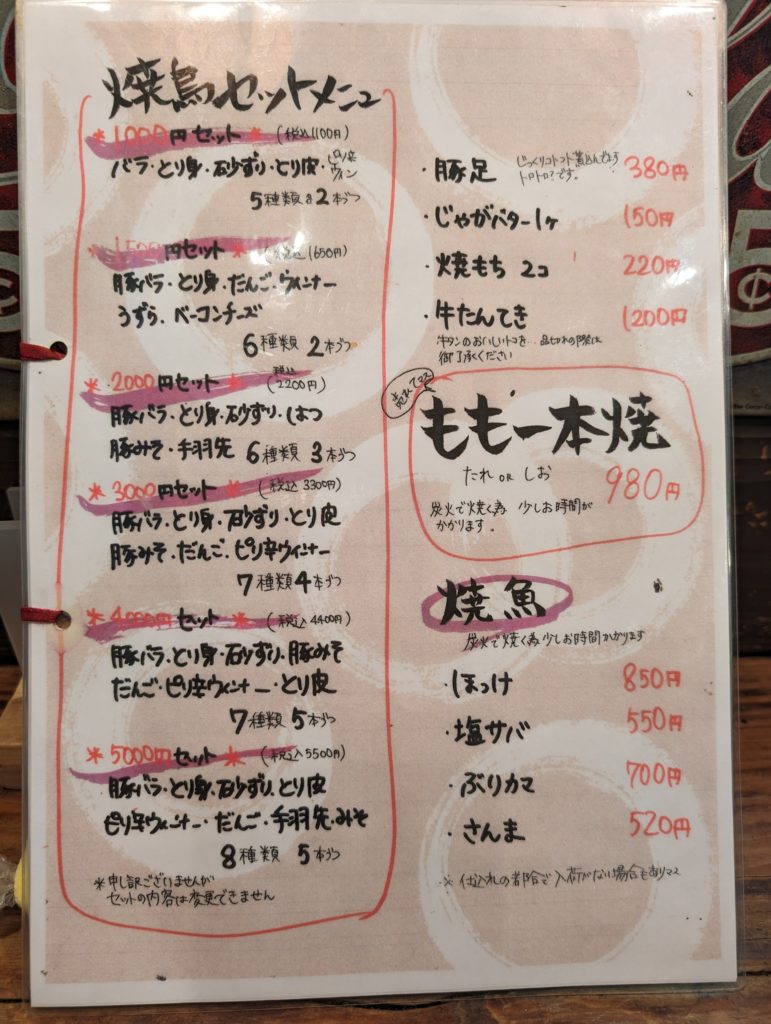 焼鳥セットメニュー
*1,000円セット* (税込1100円)
バラ・とり身・砂ずり・とり皮・ピリ辛ウィン
5種類各2本づつ
円セット (税込1650円)
豚バラ・とり身・だんご・ウィンナー
うずら、ベーコンチーズ
6種類 2本づつ
*2000円セット (税込2200円)
豚バラ・とり身・砂ずり・はつ
豚みそ・手羽先 6種類 3本づつ
*3000円セット* (税込3300円)
豚バラ・とり身・砂ずり・とり皮
豚みそ・だんご・ピリ辛ウィンナー
7種類4本づつ
*4000円セット* (税込4400円)
豚バラ・とり身・砂ずり・豚みそ
だんご・ピリ辛ウィンナー・とり皮
7種類 5本づつ
*5000円セット* (税込5500円)
豚バラ・とり身・砂ずり・とり皮
ピリ辛ウィンナー・だんご・手羽先・みそ
8種類 5本づつ
*申し訳ございませんが
セットの内容は変更できません
・豚足 じっくりコトコト煮込んでます トロトロ?です。 380円
・じゃがバター1ヶ 150円
・焼もち 2コ 220円
・牛たんてき 1200円
牛タンのおいしいトコを… 品切れの際は
御了承ください
売れてマス
もも一本焼
たれ OR しお 980円
炭火で焼く為 少しお時間が
かかります。
焼魚
炭火で焼く為少しお時間かかります
・ほっけ 850円
・塩サバ 550円
・ぶりカマ 700円
・さんま 520円
※仕込れの都合で入荷がない場合もありマス
5¢